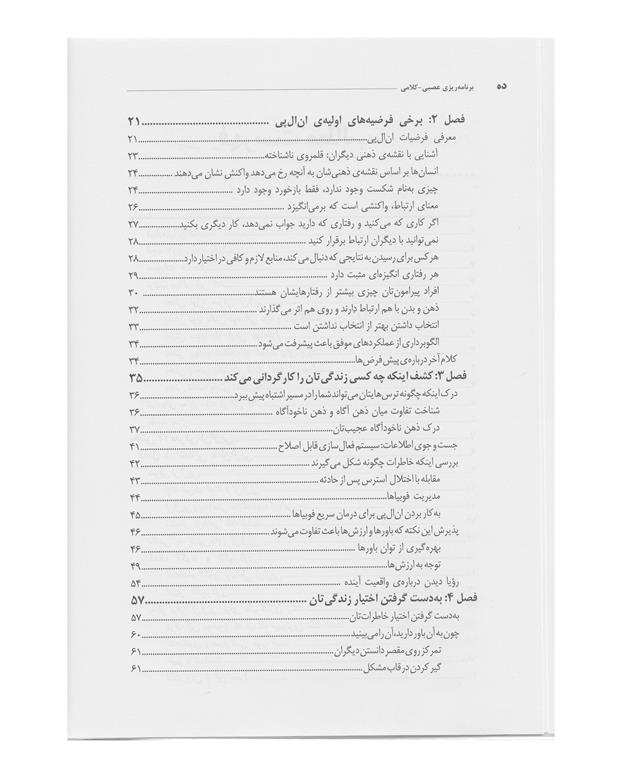 ۵۵ برنامه‌ریزی عصبی-کلامی
فصل ۲: برخی فرضیه‌های اولیه‌ی ان‌ال‌پی ........ ۲۱
معرفی فرضیات ان‌ال‌پی ........ ۲۱
آشنایی با نقشه‌ی ذهنی دیگران: قلمروی ناشناخته ........ ۲۳
انسان‌ها بر اساس نقشه‌ی ذهنی‌شان به آنچه رخ می‌دهد واکنش نشان می‌دهند ........ ۲۴
چیزی به‌نام شکست وجود ندارد، فقط بازخورد وجود دارد ........ ۲۴
معنای ارتباط، واکنشی است که برمی‌انگیزد ........ ۲۶
اگر کاری که می‌کنید و رفتاری که دارید جواب نمی‌دهد، کار دیگری بکنید ........ ۲۷
نمی‌توانید با دیگران ارتباط برقرار کنید ........ ۲۸
هرکس برای رسیدن به نتایجی که دنبال می‌کند، منابع لازم و کافی در اختیار دارد ........ ۲۸
هر رفتاری انگیزه‌ای مثبت دارد ........ ۲۹
افراد پیرامون‌تان چیزی بیشتر از رفتارهایشان هستند ........ ۳۰
ذهن و بدن با هم ارتباط دارند و روی هم اثر می‌گذارند ........ ۳۲
انتخاب داشتن بهتر از انتخاب نداشتن است ........ ۳۳
الگوبرداری از عملکردهای موفق باعث پیشرفت می‌شود ........ ۳۴
کلام آخر درباره‌ی پیش‌فرض‌ها ........ ۳۴
فصل ۳: کشف اینکه چه کسی زندگی‌تان را کارگردانی می‌کند ........ ۳۵
درک اینکه چگونه ترس‌هایتان می‌تواند شما را در مسیر اشتباه پیش ببرد ........ ۳۶
شناخت تفاوت میان ذهن آگاه و ذهن ناخودآگاه ........ ۳۶
درک ذهن ناخودآگاه عجیب‌تان ........ ۳۷
جست‌وجوی اطلاعات: سیستم فعال‌سازی قابل اصلاح ........ ۴۱
بررسی اینکه خاطرات چگونه شکل می‌گیرند ........ ۴۲
مقابله با اختلال استرس پس از حادثه ........ ۴۳
مدیریت فوبیاها ........ ۴۴
به‌کار بردن ان‌ال‌پی برای درمان سریع فوبیاها ........ ۴۵
پذیرش این نکته که باورها و ارزش‌ها باعث تفاوت می‌شوند ........ ۴۶
بهره‌گیری از توان باورها ........ ۴۶
توجه به ارزش‌ها ........ ۴۹
رؤیا دیدن درباره‌ی واقعیت آینده ........ ۵۴
فصل ۴: به‌دست گرفتن اختیار زندگی‌تان ........ ۵۷
به‌دست گرفتن اختیار خاطرات‌تان ........ ۵۷
چون به آن باور دارید، آن را می‌بینید ........ ۶۰
تمرکز روی مقصر دانستن دیگران ........ ۶۱
گیر کردن در قاب مشکل ........ ۶۱